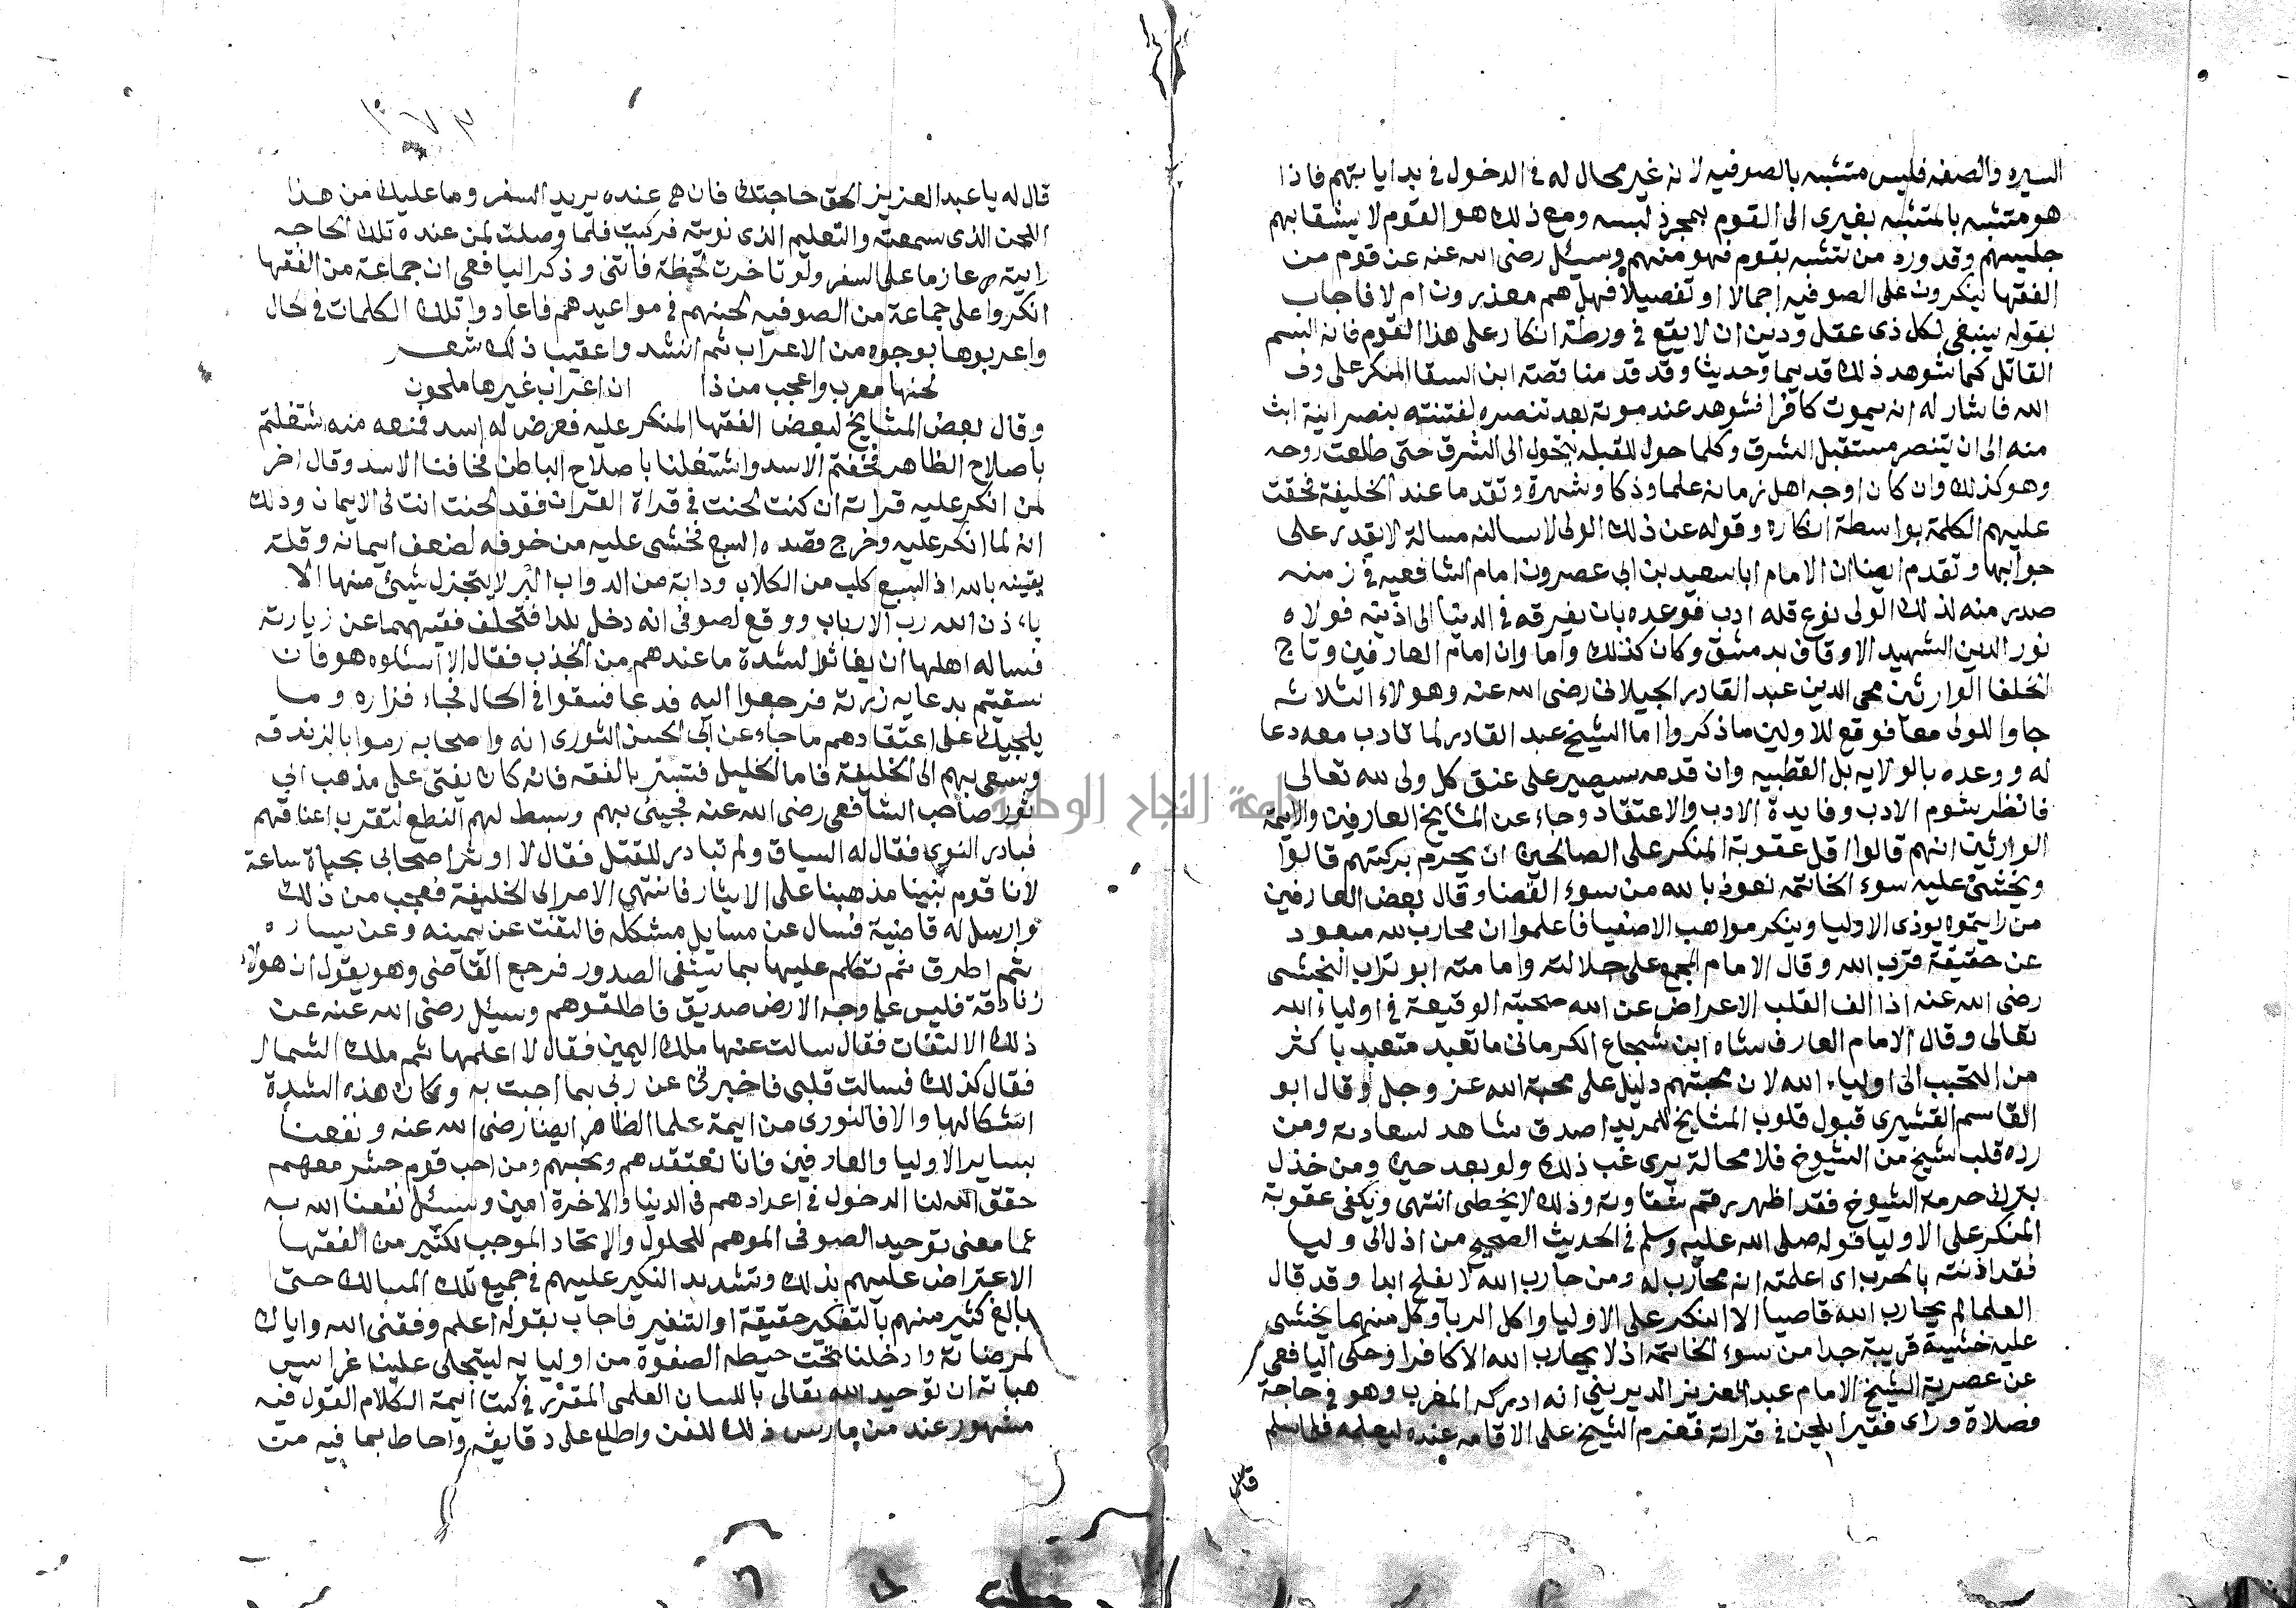 السيره والصفه فليس متشبه بالصوفيه لانه غير محال له في الدخول في بداياتهم فاذا
هو متشبه بالمتشبه بغيرى الى القوم بمجرد لبسه ومع ذلك هو القوم لا يشقا بهم
جليسهم وقد ورد من تشبه بقوم فهو منهم وسئل رضى الله عنه عن قوم من
الفقها ينكرون على الصوفيه اجمالا او تفصيلا فهل هم معذرون ام لا فاجاب
بقوله ينبغى لكل ذى عقل ودين ان لا يقع في ورطة انكار على هذا القوم فانه السم
القاتل كما شوهد ذلك قديما وحديثا وقد قدمنا قصة ابن السقا المنكر على ولى
الله فاشار له انه يموت كافرا فشوهد عند موته بعد تنصره لفتنته بنصرانية ابت
منه الى ان يتنصر مستقبل الشرق وكلما حول للقبله يتحول الى الشرق حتى طلعت روحه
وهو كذلك وان كان اوجه اهل زمانه علما وذكا وشهرة وتقدما عند الخليفة فحقت
عليهم الكلمة بواسطة انكاره وقوله عن ذلك الولى لاسالنه مسالة لا يقدر على
جوابها وتقدم ايضا ان الامام ابا سعيد بن ابى عصرون امام الشافعيه في زمنه
صدر منه لذلك الولى نوع قله ادب فوعده بان يغرقه في الدنيا الى اذنيه فولاه
نور الدين الشهيد الاوقاف بدمشق وكان كذلك واما وان امام العارفين وتاج
الخلفا الوارثين محى الدين عبد القادر الجيلانى رضى الله عنه وهولاء الثلاثه
جاوا للولى معا فوقع للاولين ما ذكروا اما الشيخ عبد القادر لما تادب معه دعا
له ووعده بالولايه بل القطبيه وان قدمه سيصير على عنق كل ولى لله تعالى
فانظر شوم الادب وفايدة الادب والاعتقاد وجاء عن المشايخ العارفين والايمة
الوارثين انهم قالوا اقل عقوبة المنكر على الصالحين ان يحرم بركتهم قالوا
ويخشى عليه سوء الخاتمه نعوذ بالله من سوء القضا وقال بعض العارفين
من رايتموه يوذى الاوليا وينكر مواهب الاصفيا فاعلموا ان محارب لله مبعود
عن حقيقة قرب الله وقال الامام المجمع على جلالته وامامته ابو تراب النخشبى
رضى الله عنه اذا الف القلب الاعراض عن الله صحبته الوقيعة في اولياء الله
تعالى وقال الامام العارف شاه ابن شجاع الكرمانى ما تعبد متعبد باكثر
من التحبب الى اولياء الله لان محبتهم دليل على محبة الله عز وجل وقال ابو
القاسم القشيرى قبول قلوب المشايخ للمريد اصدق شاهد لسعادته ومن
رده قلب شيخ من الشيوخ فلا محالة يرى غب ذلك ولو بعد حين ومن خذل
بترك حرمة الشيوخ فقد اظهر رقم شقاوته وذلك لا يخطى انتهى ويكفى عقوبة
المنكر على الاوليا قوله صلى الله عليه وسلم في الحديث الصحيح من اذل لى وليا
فقد اذنته بالحرب اى اعلمته انه محارب له ومن حارب الله لا يفلح ابدا وقد قال
العلما لم يحارب الله قاصيا الا المنكر على الاوليا واكل الربا وكل منهما يخشى
عليه خشية قريبة جدا من سوء الخاتمه اذ لا يحارب الله الا كافرا وحكى اليافعى
عن عصرية الشيخ الامام عبد العزيز الديرينى انه ادركه المغرب وهو في حاجة
فصلاة وراى فقيرا يلحن في قراته فعزم الشيخ على الاقامه عنده ليعلمه فلما سلم
قال
قال له يا عبد العزيز الحق حاجتك فان هى عنده يريد السفر وما عليك من هذا
اللحن الذى سمعته والتعليم الذى نويته فركبت فلما وصلت لمن عنده تلك الحاجه
رايته عازما على السفر ولو تاخرت لحظة فاتتنى وذكر اليافعى ان جماعة من الفقها
انكروا على جماعة من الصوفيه لحنهم في مواعيدهم فاعادوا تلك الكلمات في الحال
واعربوها بوجوه من الاعراب ثم انشد واعقيب ذلك شعر
لحنها معرب واعجب من ذا ان اعراب غيرها ملحون
وقال بعض المشايخ لبعض الفقها المنكر عليه فعرض له اسد فمنعه منه اشتغلتم
باصلاح الظاهر فخفتم الاسد واشتغلنا باصلاح الباطن فخافنا الاسد وقال اخر
لمن انكر عليه قراته ان كنت لحنت في قراة القران فقد لحنت انت في الايمان وذلك
انه لما انكر عليه وخرج قصده السبع فخشى عليه من خوفه لضعف ايمانه وقلة
يقينه بالله اذ السبع كلب من الكلاب ودابة من الدواب البر لا يتحرك شيئ منها الا
باذن الله رب الارباب ووقع لصوفى انه دخل بلدا فتخلف فقيههما عن زيارته
فساله اهلها ان يغاثوا لشدة ما عندهم من الجذب فقال الا اسئلوه هو فان
سقيتم بدعايه زرته فرجعوا اليه فدعا فسقوا في الحال فجاء فزاره وما
يلجيك على اعتقادهم ما جاء عن ابى الحسن النورى انه واصحابه رموا بالزندقه
وسعى بهم الى الخليفة فاما الخليل فتستر بالفقه فانه كان يفتى على مذهب ابى
ثور صاحب الشافعى رضى الله عنه فجيئ بهم وبسط لهم النطع لتقرب اعناقهم
فبادر النورى فقال له السياف ولم تبادر للقتل فقال لا اوثر اصحابى بحياة ساعة
لانا قوم بنينا مذهبنا على الايثار فانتهى الامر الى الخليفة فعجب من ذلك
وارسل له قاضية فسال عن مسايل مشكله فالتفت عن يمينه وعن يساره
ثم اطرق ثم تكلم عليها بما يشفى الصدور فرجع القاضى وهو يقول ان هولاء
زنادقة فليس على وجه الارض صديق فاطلقوهم وسئل رضى الله عنه عن
ذلك الالتفات فقال سالت عنها ملك اليمين فقال لا اعلمها ثم ملك الشمال
فقال كذلك فسالت قلبى فاخبرنى عن ربى بما اجبت به وكان هذه الشدة
اشكالها والا فالنورى من ايمة علما الظاهر ايضا رضى الله عنه ونفعنا
بساير الاوليا والعارفين فانا نعتقدهم ونحبهم ومن احب قوم حشر معهم
حقق الله لنا الدخول في اعدادهم في الدنيا والاخرة امين وسئل نفعنا الله به
عما معنى توحيد الصوفى الموهم للحلول والاتحاد الموجب لكثير من الفقها
الاعتراض عليهم بذلك وتشديد النكير عليهم في جميع تلك المسالك حتى
بالغ كثير منهم بالتفكير حقيقة او التنفير فاجاب بقوله اعلم وفقنى الله واياك
لمرضاته وادخلنا تحت حيطه الصفوة من اوليايه ليتجلى علينا عرايس
هباته ان توحيد الله تعالى باللسان العلمى المقرر في كتب ايمة الكلام القول فيه
مشهور عند من مارس ذلك للفن واطلع على دقايقه واحاط بما فيه من
جامعة النجاح الوطنية